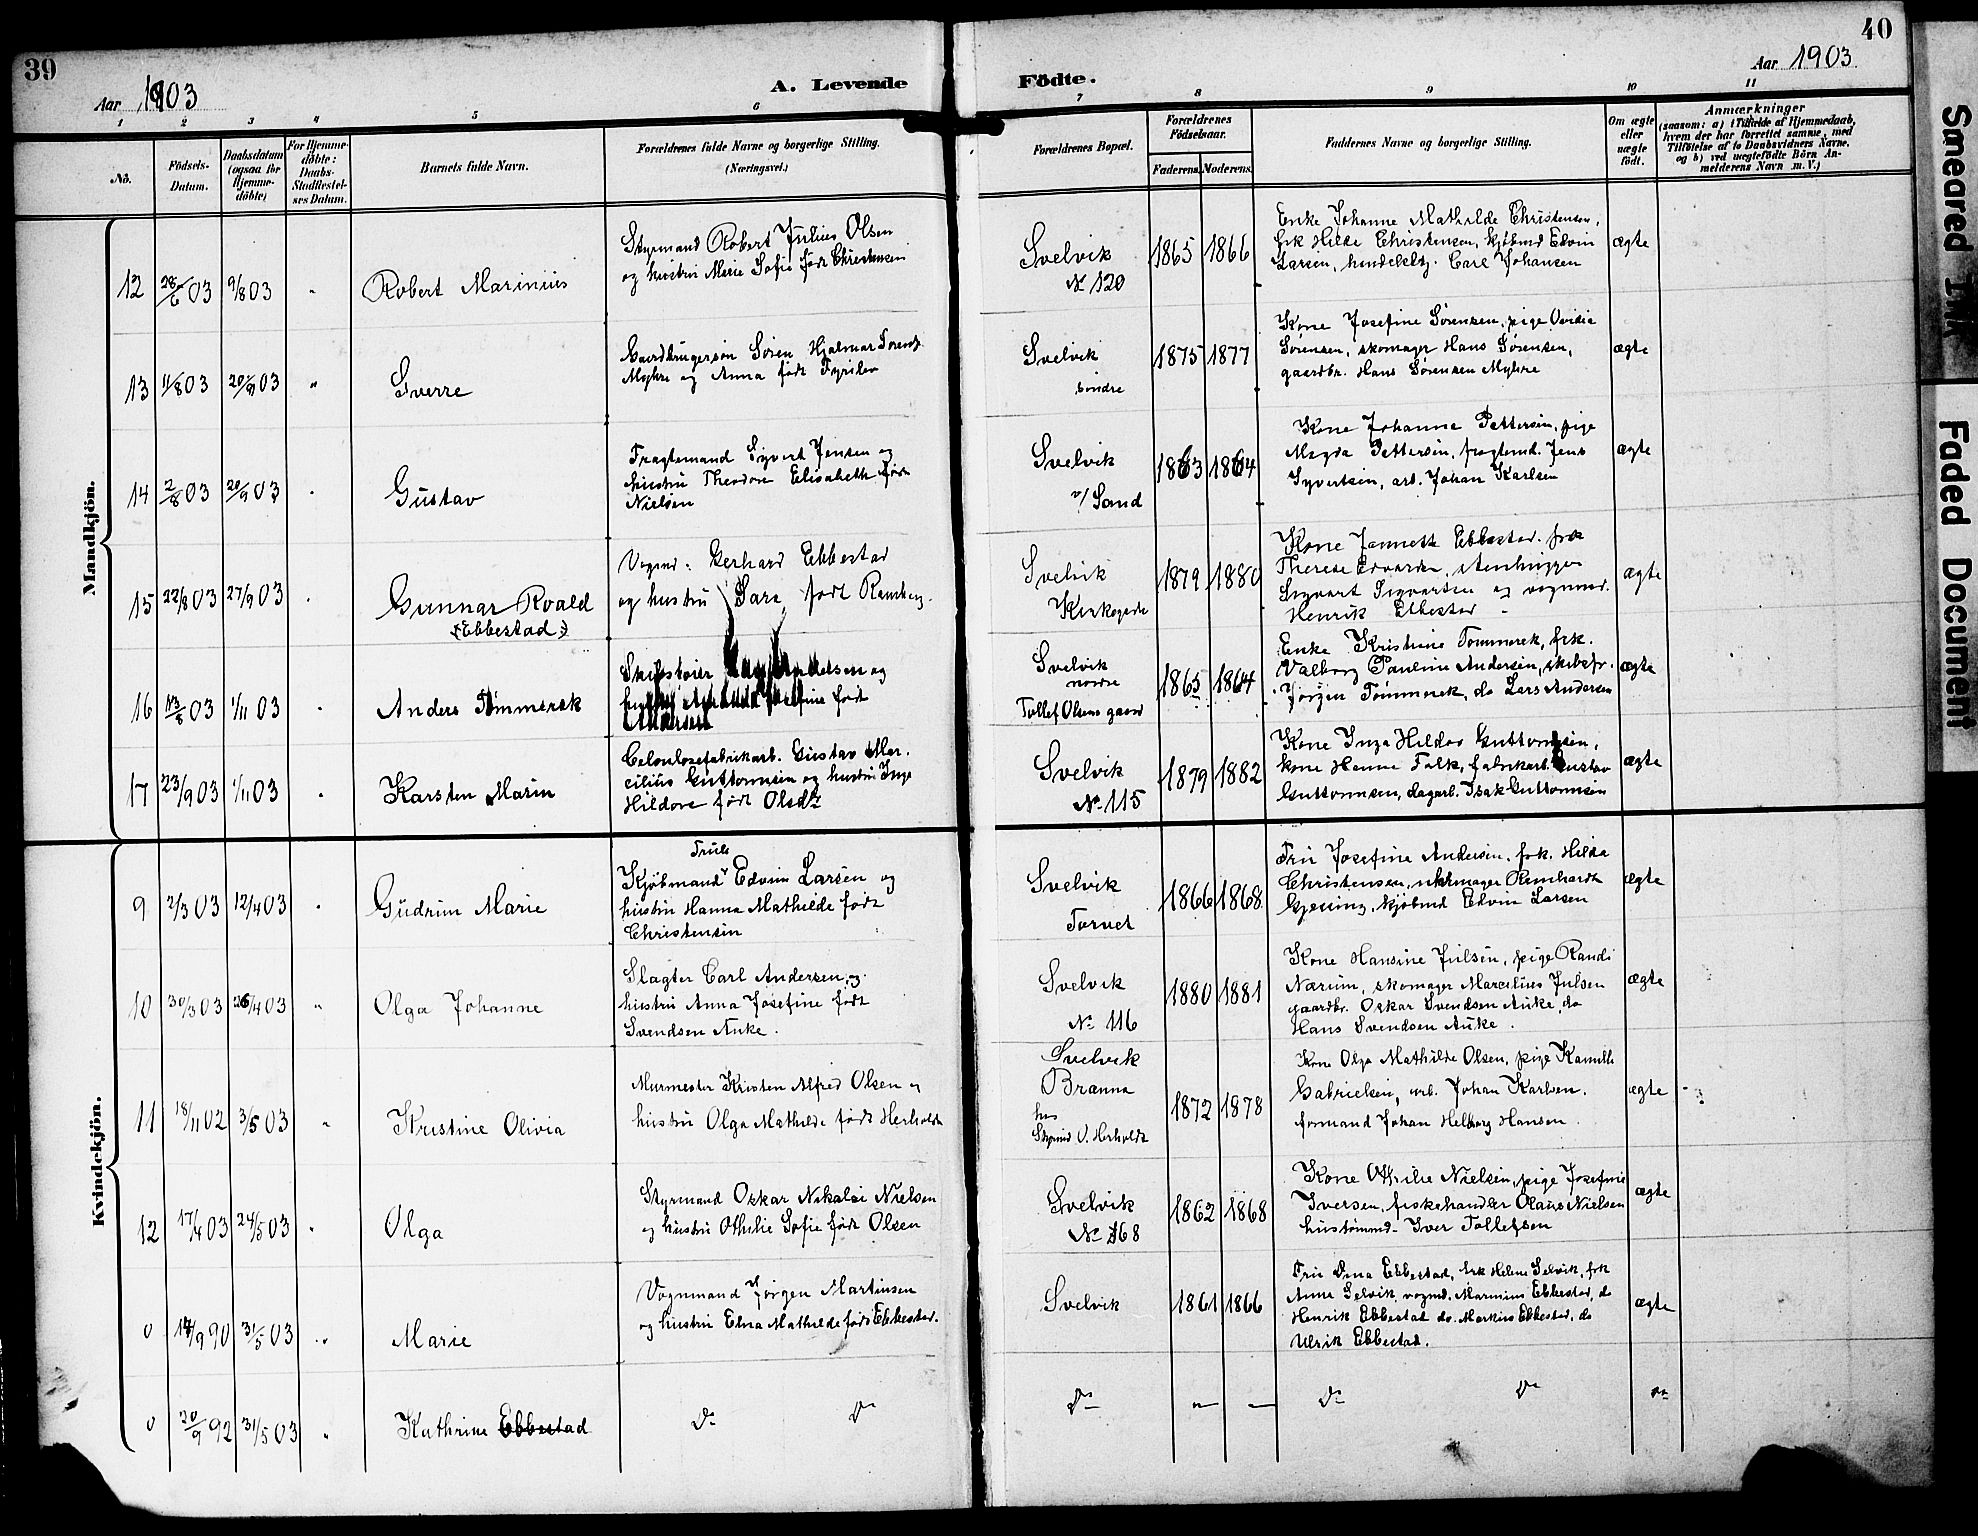 39
Aar 1903
A. Levende
1 2 3 4 5 6
No.
Födsels-
Datum.
Daabsdatum
(ogsaa for
Hjemme-
döbte)
For Hjemme-
döbte:
Daabs-
Stadfæstel-
ses Datum.
Barnets fulde Navn.
Forældrenes fulde Navne og borgerlige Stilling.
(Næringsvei.)
Mandkjön.
12 28/6 03 9/8 03 " Robert Marinius
Styrmand Robert Julius Olsen
og hustru Marie Sofie født Christensen
13 11/8 03 20/9 03 " Sverre
Gaardbrugersøn Søren Hjalmar Sørens.
Myhre og Anna født
14 2/8 03 20/9 03 " Gustav
Fragtemand Syvert Jensen og
hustru Theodora Elisabeth født
Nielsen
15 22/8 03 27/9 03 " Gunnar Roald
(Ebbestad)
Vognmd. Gerhard Ebbestad
og hustru Sara født Ramberg.
16 03 1/11 03 " Anders Tømmerek
født
Andersen
17 23/9 03 1/11 03 " Karsten Marin
Celulosefabrikarb. Gustav Mar-
cilius Guttormsen og hustru Inga
Hildora født Olsdtr
Kvindekjön.
9 2/3 03 12/4 03 " Gudrun Marie
Truls
Kjøbmand Edvin Larsen og
hustru Hanna Mathilde født
Christensen
10 30/3 03 26/4 03 " Olga Johanne
Slagter Carl Andersen og
hustru Anna Josefine født
Svendsen Auke.
11 18/11 02 3/5 03 " Kristine Olivia
Murmester Kristen Alfred Olsen og
hustru Olga Mathilde født Herholdt
12 17/4 03 24/5 03 " Olga
Styrmand Oskar Nikolai Nielsen
og hustru Othilie Sofie født Olsen
0 14/9 90 31/5 03 " Marie
Vognmand Jørgen Martinsen
og hustru Elna Mathilde født Ebbestad.
0 20/9 92 31/5 03 " Kathrine Ebbestad
Do Do
40
Aar 1903
Födte.
7 8 9 10 11
Forældrenes Bopæl.
Forældrenes
Födselsaar.
Faderens. Moderens.
Faddernes Navne og borgerlige Stilling.
Om ægte
eller
uægte
födt.
Anmærkninger
(saasom: a) i Tilfælde af Hjemmedaab,
hvem der har forrettet samme, med
Tilföielse af to Daabsvidners Navne,
og b) ved uægtefödte Börn An-
melderens Navn m. V.)
Svelvik
No 120
1865 1866
Enke Johanne Mathilde Christensen,
frk Hilda Christensen, kjøbmd Edvin
Larsen, handelsbtj. Carl Johansen
ægte
Svelvik
søndre
1875 1877
Kone Josefine Sørensen, pige Ovidia
Sørensen, skomager Hans Sørensen,
gaardbr. Hans Sørensen Myhre
ægte
Svelvik
v/ Sand
1863 1864
Kone Johanne Pettersen, pige
Magda Pettersen, fragtemd. Jens
Syvertsen, arb. Johan Karlsen
ægte
Svelvik
Kirkegade
1879 1880
Kone Jannette Ebbestad, frk
Therese Edvardsen, stenhugger
Sigvart Sigvartsen og vognmd.
Henrik Ebbestad
ægte
Svelvik
nordre
Tollef Olsens gaard
1865 1864
Enke Kristiane Tømmerek, frk.
Valborg Pauline Andersen, skibsfr.
Jørgen Tømmerek, do Lars Andersen
ægte
Svelvik
No 115
1879 1882
Kone Inga Hilda Guttormsen,
kone Hanna Falk, fabrikarb. Gustav
Guttormsen, dagarb. Isak Guttormsen
ægte
Svelvik
Torvet
1866 1868
Fru Josefine Andersen, frk. Hilda
Christensen, uhrmager Reinhardt
Gjessing, kjøbmd Edvin Larsen
ægte
Svelvik
No 116
1880 1881
Kone Hansine Julsen, pige Randi
Nærum, skomager Marcilius Julsen
gaardbr. Oskar Svendsen Auke, do
Hans Svendsen Auke.
ægte
Svelvik
Branna
hos
Styrmd O. Herholdt
1872 1878
Kone Olga Mathilde Olsen, pige Kamilla
Gabrielsen, arb. Johan Karlsen.
formand Johan Helberg Hansen.
ægte
Svelvik
No 168
1862 1868
Kone Othilie Nielsen, pige Josefine
Iversen, fiskehandler Olaus Nielsen
hustømmd. Iver Tollefsen
ægte
Svelvik
1861 1866
Fru Ebbestad, frk Helene Selvik, frk
Anne Selvik, vognmd. Marinius Ebbestad, do
Henrik Ebbestad do. Markus Ebbestad, do
Ulrik Ebbestad.
ægte
Do Do Do Do
Smeared Ink
Faded Document